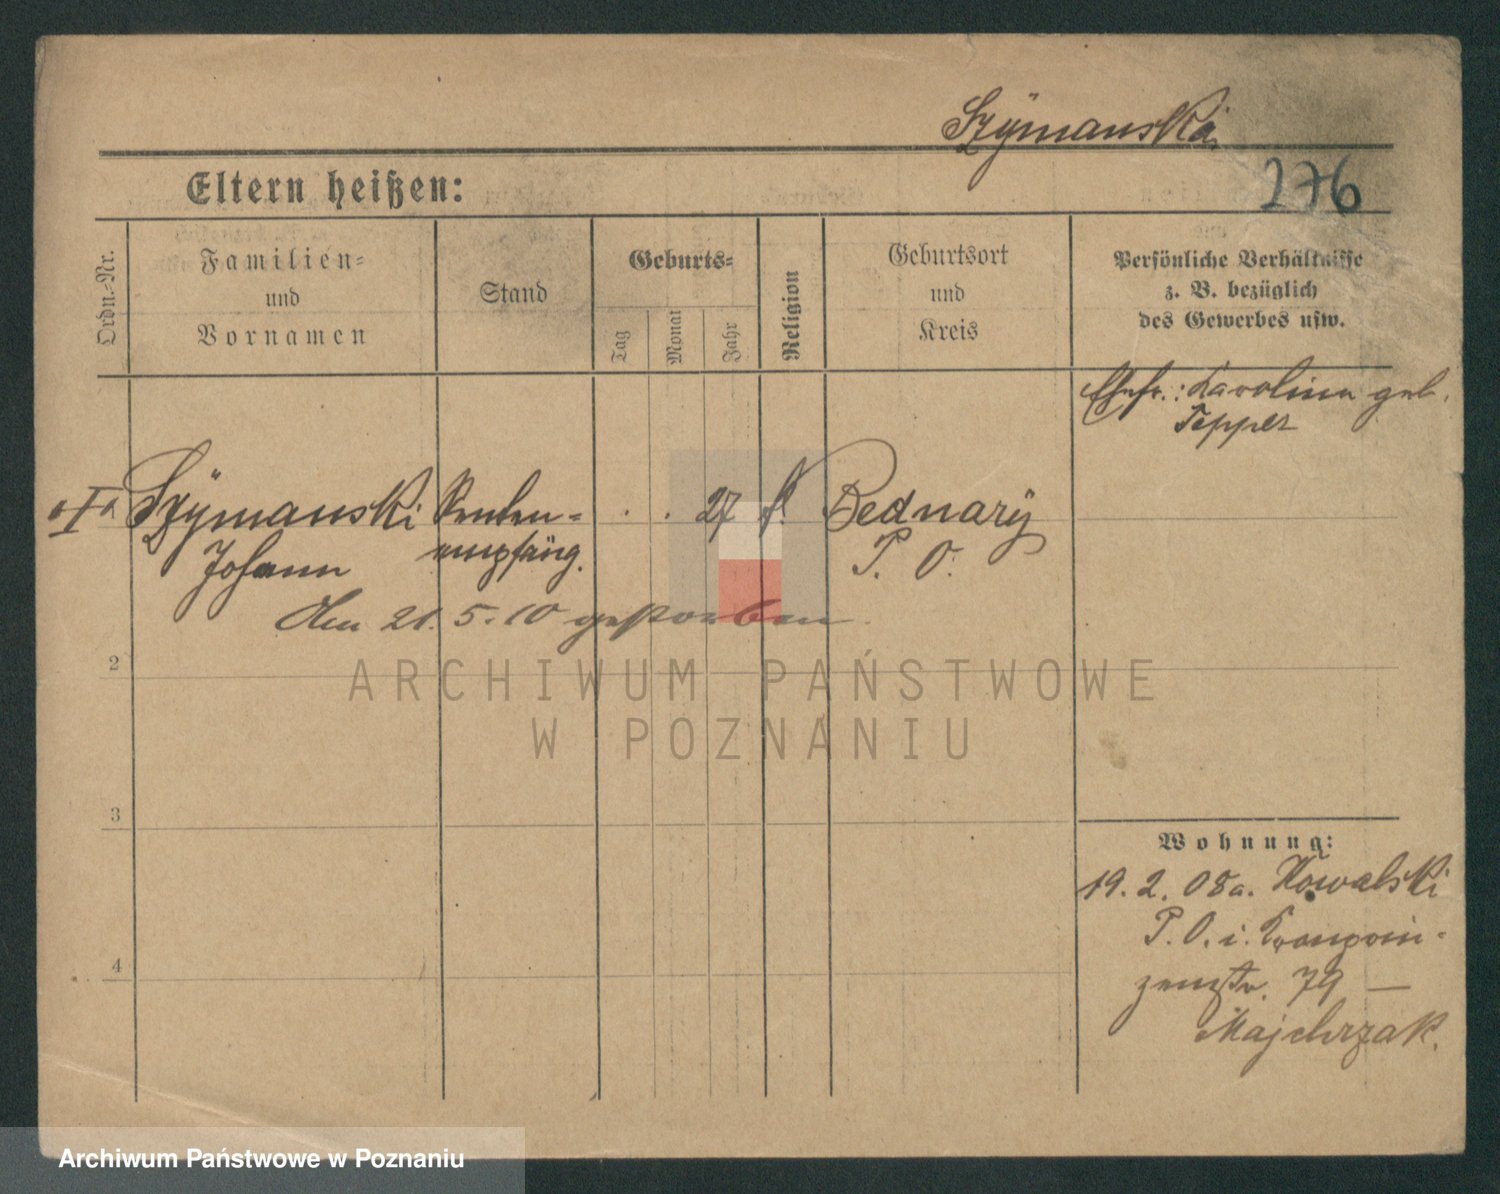 Szÿmanski
276
Eltern heißen:
Ordn.-Nr.
Familien-
und
Vornamen
Stand
Geburts-
Tag
Monat
Jahr
Religion
Geburtsort
und
Kreis
Persönliche Verhältnisse
z. B. bezüglich
des Gewerbes usw.
Ehefr.: Karolina geb.
Tepper
"I" Szÿmanski Renten= . . 27 k. Bednarÿ
Johann empfäng. P. O.
Den 21. 5. 10 gestorben.
2
3
4
Wohnung:
19. 2. 08 a. Kowalski
P. O. i. Kronprin-
zenstr. 79 —
Majchrzak.
ARCHIWUM PAŃSTWOWE
W POZNANIU
Archiwum Państwowe w Poznaniu